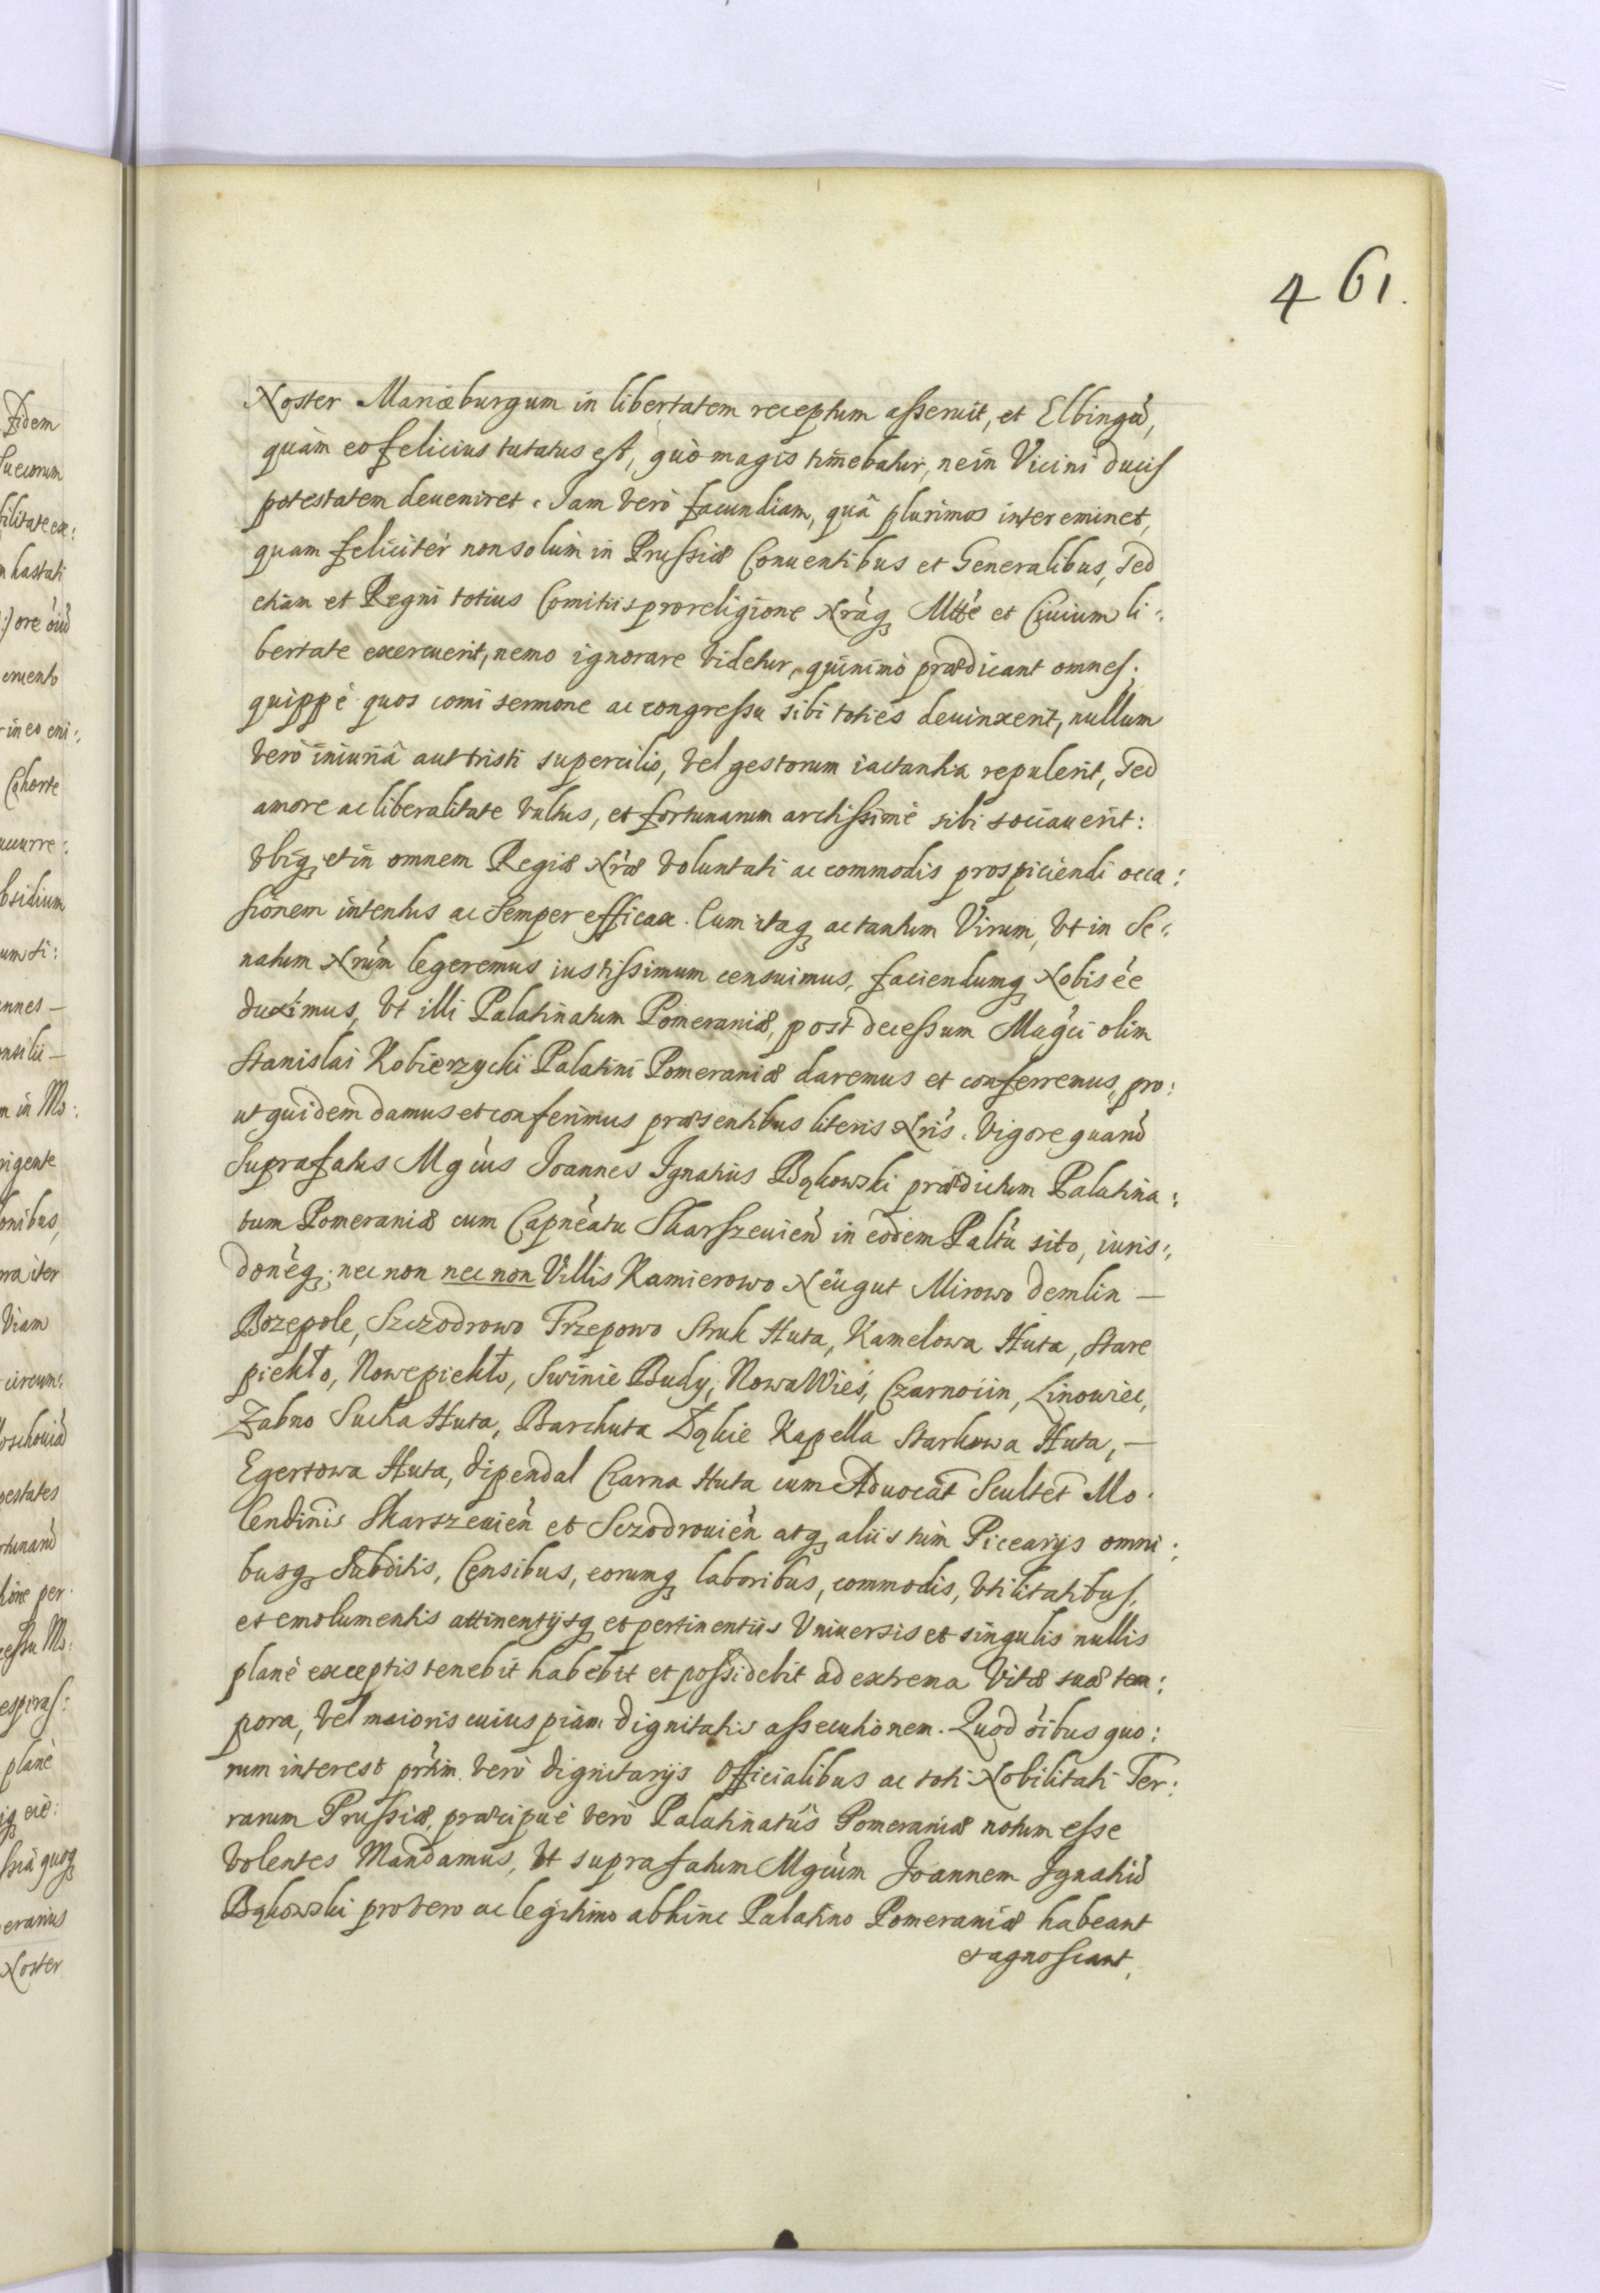 461.
Noster Mariæburgum in libertatem receptum asseruit, et Elbingũ,
quàm eo felicius tutatus est, quò magis timebatur, ne in Vicini ducis
potestatem deveniret. Iam verò facundiam, quâ plurimos inter eminet,
quam felicitèr non solùm in Prussiæ Conventibus et Generalibus, sed
etiam et Regni totius Comitiis pro religione Nrãq Mtte et Civium li:
bertate exercuerit, nemo ignorare videtur, quinimò prædicant omnes;
quippè quos comi sermone ac congressu sibi toties devinxerit, nullum
verò iniuriâ aut tristi supercilio, vel gestorum iactantia repulerit, sed
amore ac liberalitate vultus, et fortunarum arctissimè sibi sociaverit:
Vbiq et in omnem Regiæ Nræ voluntati ac commodis prospiciendi occa:
sionem intentus ac semper efficax. Cum itaq ac tantum Virum, Vt in Se:
natum Nrũm legeremus iustissimum censuimus, faciendumq Nobis ẽe
duximus, Vt illi Palatinatum Pomeraniæ, post decessum Magci olim
Stanislai Kobierzycki Palatini Pomeraniæ daremus et conferremus, pro:
ut quidem damus et conferimus præsentibus literis Nris. Vigore quarũ
Suprafatus Mgcus Joannes Ignatius Bąkowski prædictum Palatina:
tum Pomeraniæ cum Capneatu Skarszewien in eodem Paltu sito, iuris:
doneq; nec non nec non Villis Kamierowo Neugut Mirowo demlin —
Bozepole, Szczodrowo Trzepowo Struk Huta, Kamelowa Huta, Stare
piekło, Nowepiekło, Swinie Budy, Nowa Wieś, Czarnoiin, Linowiec,
Zabno Sucha Huta, Barchuta Dąkie Kapella Starkowa Huta, —
Egertowa Huta, dipendal Czarna Huta cum Advocat Scultet Mo:
lendinis Skarszewien et Sczodrowien atq aliis tum Picearys omni:
busq Subditis, Censibus, eorumq laboribus, commodis, Vtilitatibus,
et emolumentis attinentysq et pertinentiis Universis et singulis nullis
planè exceptis tenebit habebit et possidebit ad extrema vitæ suæ tem:
pora, vel maioris cuiuspiam dignitatis assecutionem. Quod õibus quo:
rum interest prim verò dignitarys Officialibus ac toti Nobilitati Ter:
rarum Prussiæ, præcipuè verò Palatinatûs Pomeraniæ notum esse
Volentes Mandamus, Vt suprafatum Mgcum Joannem Ignatiũ
Bąkowski pro vero ac legitimo abhinc Palatino Pomeraniæ habeant
et agnoscant,